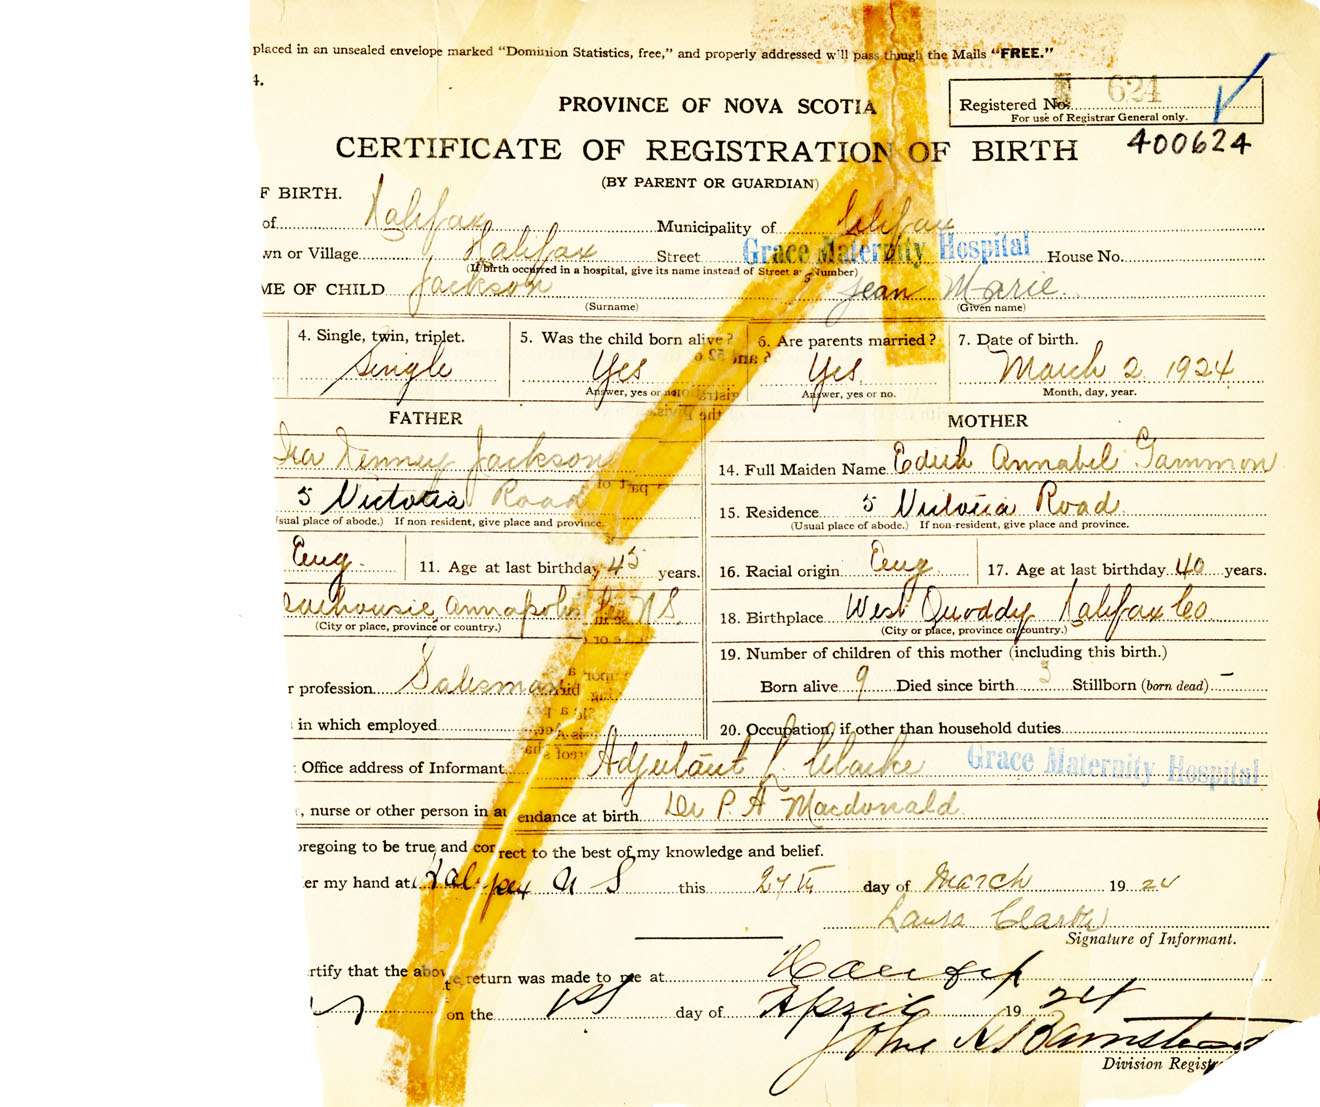 placed in an unsealed envelope marked "Dominion Statistics, free," and properly addressed will pass though the Mails "FREE."
4.
PROVINCE OF NOVA SCOTIA
Registered No. 624
For use of Registrar General only.
CERTIFICATE OF REGISTRATION OF BIRTH 400624
(BY PARENT OR GUARDIAN)
F BIRTH.
of Halifax Municipality of Halifax
wn or Village Halifax Street Grace Maternity Hospital House No.
(If birth occurred in a hospital, give its name instead of Street and Number)
ME OF CHILD Jackson Jean Marie
(Surname) (Given name)
4. Single, twin, triplet. 5. Was the child born alive? 6. Are parents married? 7. Date of birth.
Single Yes Yes March 2 1924
Answer, yes or no. Answer, yes or no. Month, day, year.
FATHER MOTHER
Ira Kenney Jackson 14. Full Maiden Name Edith Annabel Gammon
5 Victoria Road 15. Residence 5 Victoria Road
sual place of abode.) If non-resident, give place and province. (Usual place of abode.) If non-resident, give place and province.
Eng. 11. Age at last birthday 45 years. 16. Racial origin Eng. 17. Age at last birthday 40 years.
Dalhousie, Annapolis Co N.S. 18. Birthplace West Quoddy, Halifax Co
(City or place, province or country.) (City or place, province or country.)
19. Number of children of this mother (including this birth.)
r profession Salesman Born alive 9 Died since birth 3 Stillborn (born dead) –
in which employed 20. Occupation, if other than household duties
Office address of Informant Adjutant L Clarke Grace Maternity Hospital
, nurse or other person in attendance at birth Dr P. A Macdonald
oregoing to be true and correct to the best of my knowledge and belief.
er my hand at Halifax N S this 27th day of March 1924
Laura Clarke
Signature of Informant.
rtify that the above return was made to me at Halifax
on the 1st day of April 1924
John A Barnstead
Division Regist